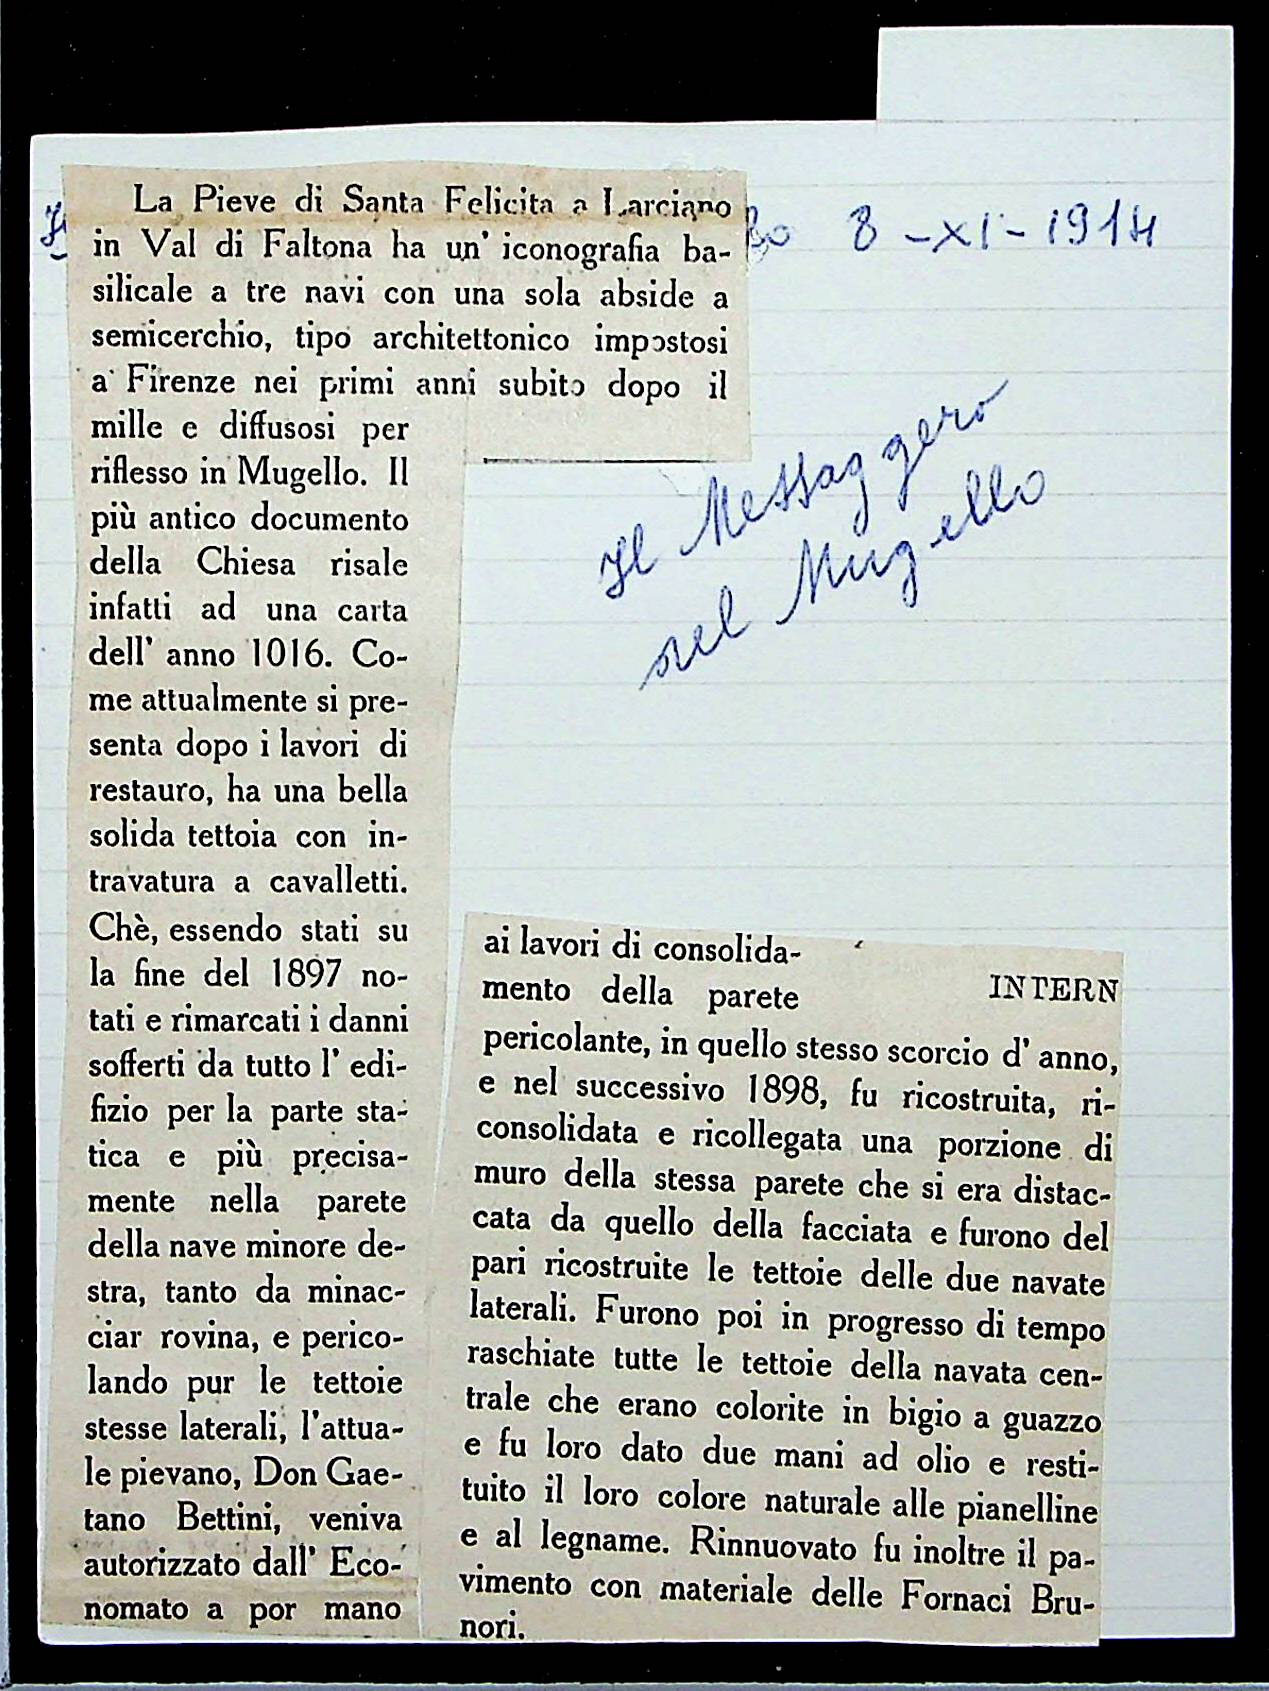 8 - XI - 1914
La Pieve di Santa Felicita a Larciano
in Val di Faltona ha un' iconografia ba-
silicale a tre navi con una sola abside a
semicerchio, tipo architettonico impostosi
a Firenze nei primi anni subito dopo il
mille e diffusosi per
riflesso in Mugello. Il
più antico documento
della Chiesa risale
infatti ad una carta
dell' anno 1016. Co-
me attualmente si pre-
senta dopo i lavori di
restauro, ha una bella
solida tettoia con in-
travatura a cavalletti.
Chè, essendo stati su
la fine del 1897 no-
tati e rimarcati i danni
sofferti da tutto l' edi-
fizio per la parte sta-
tica e più precisa-
mente nella parete
della nave minore de-
stra, tanto da minac-
ciar rovina, e perico-
lando pur le tettoie
stesse laterali, l'attua-
le pievano, Don Gae-
tano Bettini, veniva
autorizzato dall' Eco-
nomato a por mano
Il Messaggero
nel Mugello
ai lavori di consolida-
mento della parete
INTERN
pericolante, in quello stesso scorcio d' anno,
e nel successivo 1898, fu ricostruita, ri-
consolidata e ricollegata una porzione di
muro della stessa parete che si era distac-
cata da quello della facciata e furono del
pari ricostruite le tettoie delle due navate
laterali. Furono poi in progresso di tempo
raschiate tutte le tettoie della navata cen-
trale che erano colorite in bigio a guazzo
e fu loro dato due mani ad olio e resti-
tuito il loro colore naturale alle pianelline
e al legname. Rinnuovato fu inoltre il pa-
vimento con materiale delle Fornaci Bru-
nori.